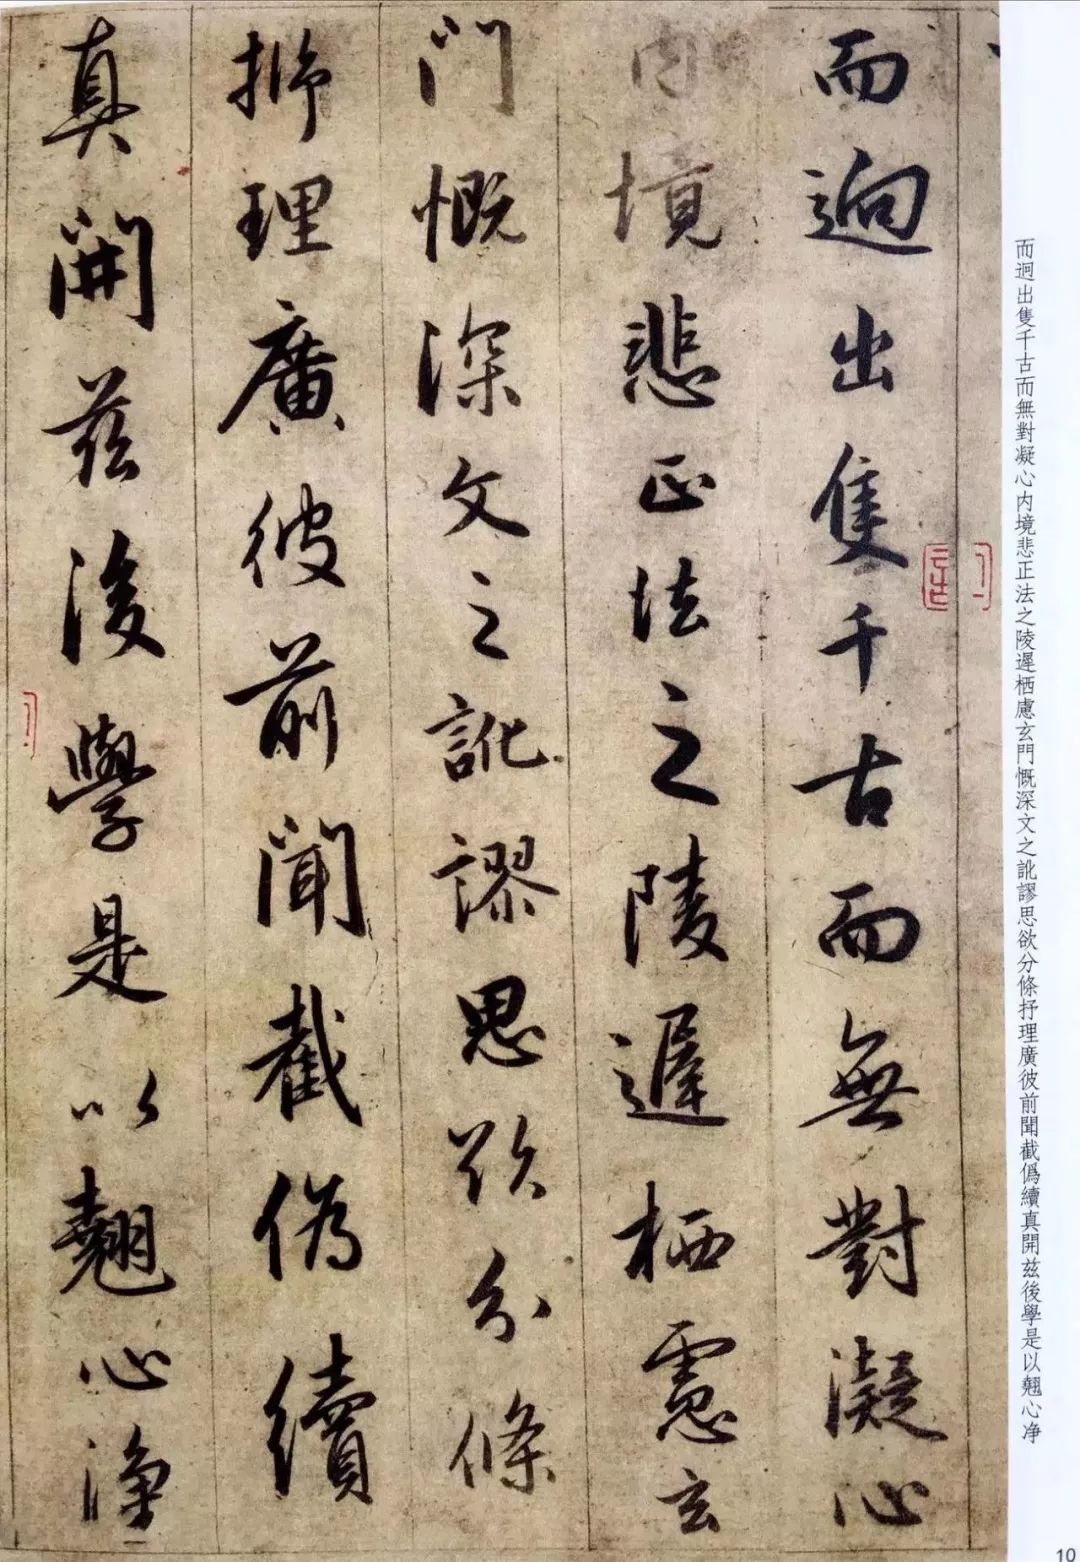 而迥出隻千古而無對凝心
内境悲正法之陵遲栖慮玄
門慨深文之訛謬思欲分條
抒理廣彼前聞截偽續
真開兹後學是以翹心淨
而迥出隻千古而無對凝心内境悲正法之陵遲栖慮玄門慨深文之訛謬思欲分條抒理廣彼前聞截僞續真開兹後學是以翹心净
10